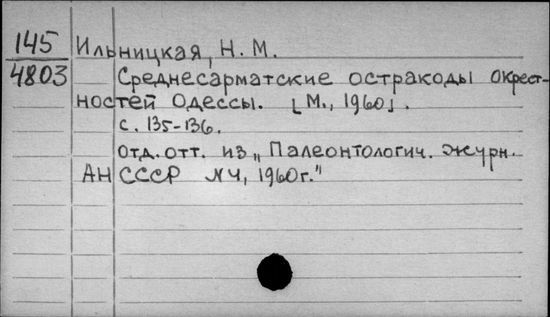 145
4803
Ильницкая, Н. М.
Среднесарматские остракоды окрест-
ностей Одессы. [М., 1960].
с. 135-136.
Отд. отт. из „Палеонтологич. журн.
АН СССР №4, 1960г."